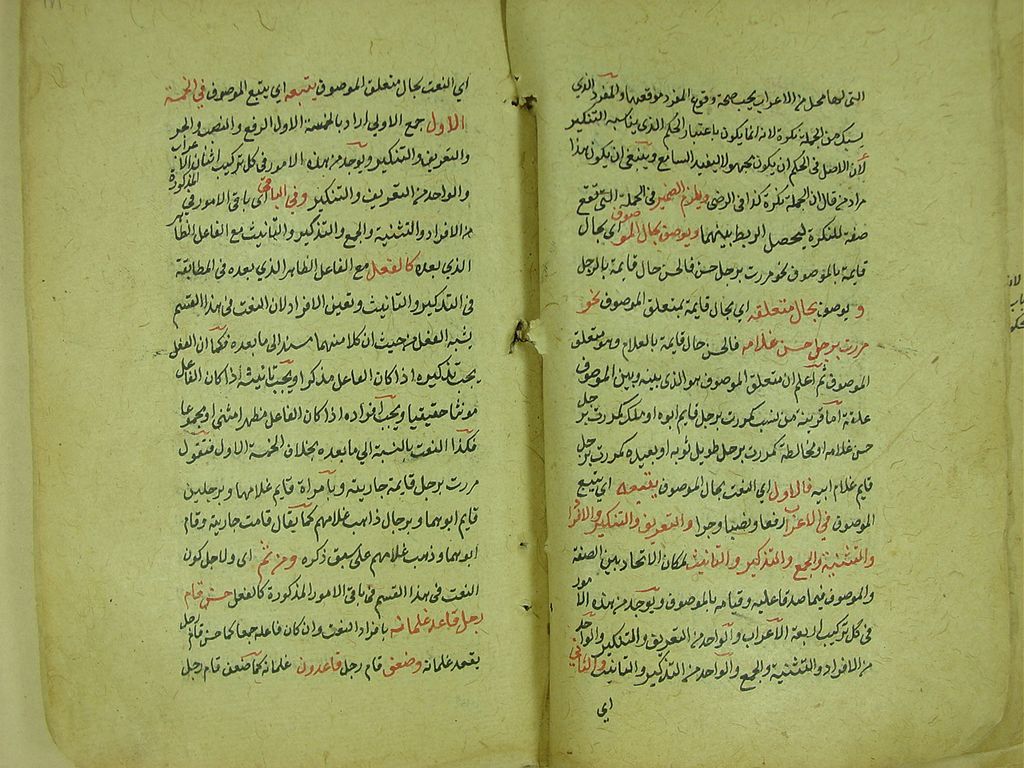 التى لها محل من الاعراب يجب صحة وقوع المفرد موقعها والمفرد الذي
يسبك من الجملة نكرة لانه انما يكون باعتبار الحكم الذى يناسبه التنكير
لان الاصل فى الحكم ان يكون مجهولا ليفيد السامع وينبغى ان يكون هذا
مراد من قال ان الجملة نكرة كذا فى الرضى ويلزم الضمير فى الجملة التى تقع
صفة للنكرة ليحصل الربط بينهما ويوصف بحال الموصوف اى بحال
قايمة بالموصوف نحو مررت برجل حسن فالحسن حال قايمة بالرجل
و يوصف بحال متعلقه اى بحال قايمة بمتعلق الموصوف نحو
مررت برجل حسن غلامه فالحسن حال قايمة بالغلام وهو متعلق
الموصوف ثم اعلم ان متعلق الموصوف هو الذى بينه وبين الموصوف
علقة اما قريبة من نسب كمررت برجل قايم ابوه او ملك كمررت برجل
حسن غلامه او مخالطة كمررت برجل طويل ثوبه او بعيده كمررت برجل
قايم غلام ابيه فالاول اى النعت بحال الموصوف يتبعه اى يتبع
الموصوف فى الاعراب رفعا ونصبا وجرا والتعريف والتنكير والافراد
والتثنية والجمع والتذكير والتانيث لمكان الاتحاد بين الصفة
والموصوف فيما صدقا عليه وقيامه بالموصوف ويوجد من هذه الامور
فى كل تركيب اربعة الاعراب والواحد من التعريف والتنكير والواحد
من الافراد والتثنية والجمع والواحد من التذكير والتانيث والثانى
اى
اى النعت بحال متعلق الموصوف يتبعه اى يتبع الموصوف فى الخمسة
الاول جمع الاولى اراد بالخمسة الاول الرفع والنصب والجر
والتعريف والتنكير ويوجد من هذه الامور فى كل تركيب اثنان الاعراب
والواحد من التعريف والتنكير وفى الباقى اى باقى الامور المذكورة فى
من الافراد والتثنية والجمع والتذكير والتانيث مع الفاعل الظاهر
الذى بعده كالفعل مع الفاعل الظاهر الذى بعده فى المطابقة
فى التذكير والتانيث وتعين الافراد لان النعت فى هذا القسم
يشبه الفعل من حيث ان كلا منهما مسند الى ما بعده فكما ان الفعل
يجب تذكيره اذا كان الفاعل مذكرا ويجب تانيثه اذا كان الفاعل
مونثا حقيقيا ويجب افراده اذا كان الفاعل مظهرا مثنى او مجموعا
فكذا النعت بالنسبة الى ما بعده بخلاف الخمسة الاول فتقول
مررت برجل قايمة جاريته وبامراة قايم غلامها وبرجلين
قايم ابوهما وبرجال ذاهب غلامهم كما يقال قامت جاريته وقام
ابوهما وذهب غلامهم على سبق ذكره ومن ثم اى ولاجل كون
النعت فى هذا القسم فى باقى الامور المذكورة كالفعل حسن قام
رجل قاعد غلمانه بافراد النعت وان كان فاعله جمعا كما حسن قام رجل
يقعد غلمانه وضعف قام رجل قاعدون غلمانه كما ضعف قام رجل